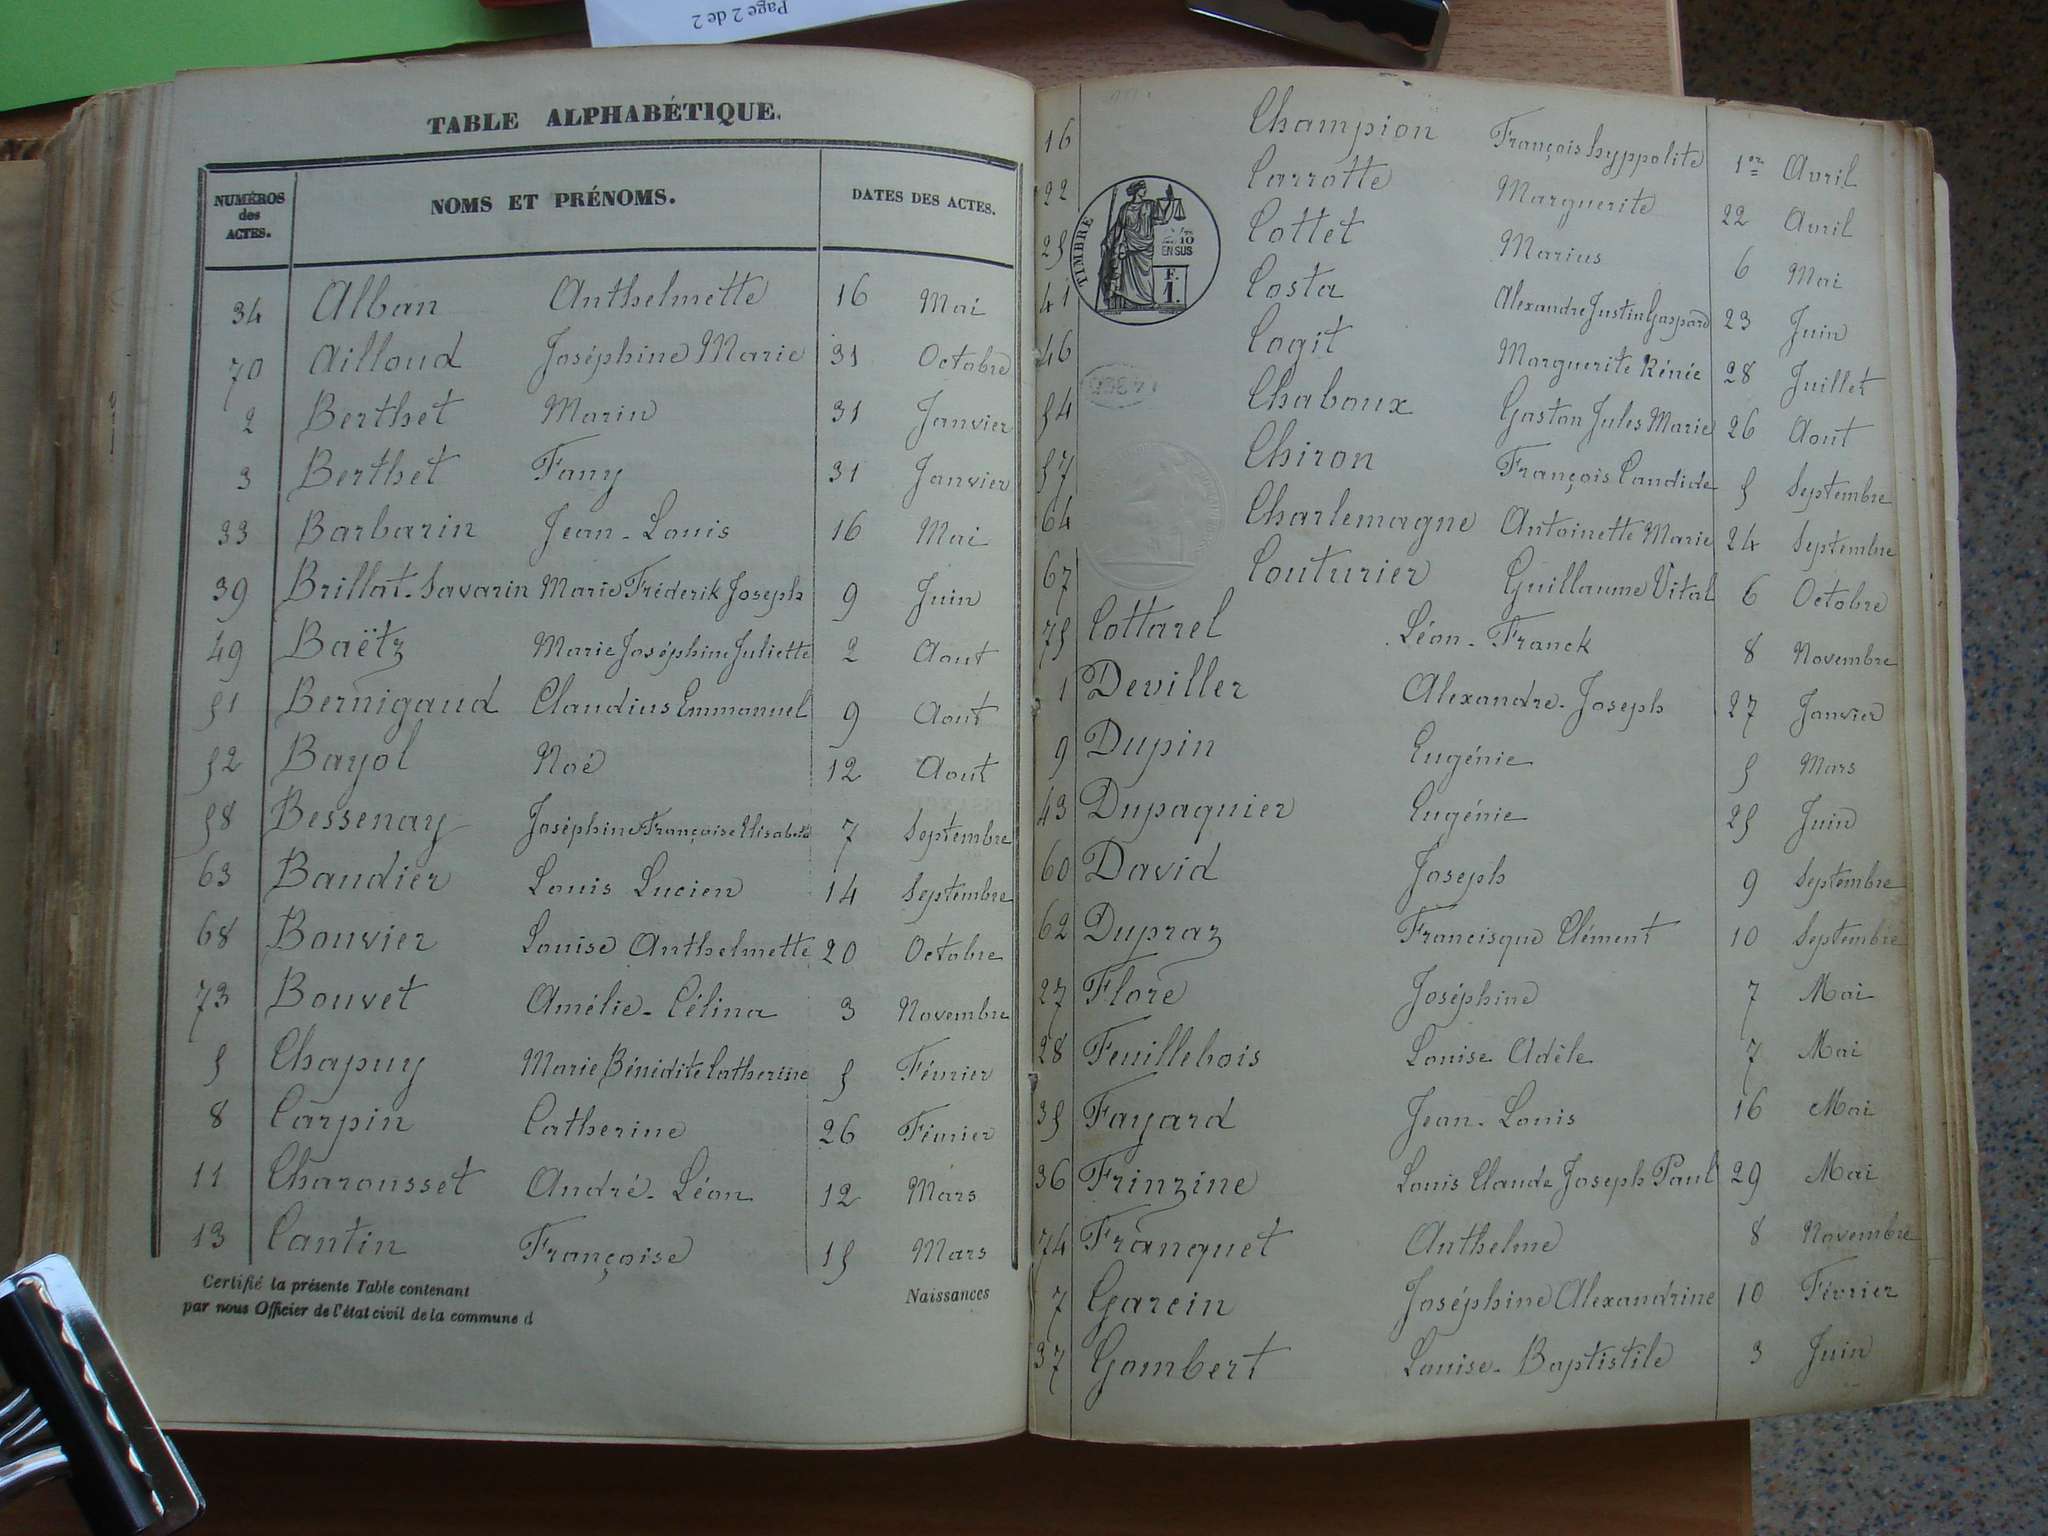 Page 2 de 2
TABLE ALPHABÉTIQUE.
NUMÉROS des ACTES. NOMS ET PRÉNOMS. DATES DES ACTES.
34 Alban Anthelmette 16 Mai
70 Ailloud Joséphine Marie 31 Octobre
2 Berthet Marin 31 Janvier
3 Berthet Fany 31 Janvier
33 Barbarin Jean-Louis 16 Mai
39 Brillat-Savarin Marie Fréderik Joseph 9 Juin
49 Baëtz Marie Joséphine Juliette 2 Aout
51 Bernigaud Claudius Emmanuel 9 Aout
52 Bayol Noé 12 Aout
58 Bessenay Joséphine Françoise Elisabeth 7 Septembre
63 Baudier Louis Lucien 14 Septembre
68 Bouvier Louise Anthelmette 20 Octobre
73 Bouvet Amélie-Célina 3 Novembre
5 Chapuy Marie Bénédite Catherine 5 Février
8 Carpin Catherine 26 Février
11 Charousset André-Léon 12 Mars
13 Cantin Françoise 15 Mars
Certifié la présente Table contenant Naissances
par nous Officier de l'état civil de la commune d
16 Champion François hyppolite 1er Avril
22 Carrotte Marguerite 22 Avril
25 Cottet Marius 6 Mai
41 Costa Alexandre Justin Gaspard 23 Juin
46 Cogit Marguerite Rénée 28 Juillet
54 Chaboux Gaston Jules Marie 26 Aout
57 Chiron François Candide 5 Septembre
64 Charlemagne Antoinette Marie 24 Septembre
67 Couturier Guillaume Vital 6 Octobre
75 Cottarel Léon-Franck 8 Novembre
1 Deviller Alexandre-Joseph 27 Janvier
9 Dupin Eugénie 5 Mars
43 Dupaquier Eugénie 25 Juin
60 David Joseph 9 Septembre
62 Dupraz Francisque Clément 10 Septembre
27 Flore Joséphine 7 Mai
28 Feuillebois Louise Adèle 7 Mai
35 Fayard Jean-Louis 16 Mai
36 Frinzine Louis Claude Joseph Paul 29 Mai
74 Franquet Anthelme 8 Novembre
7 Garcin Joséphine Alexandrine 10 Février
37 Gombert Louise-Baptistile 3 Juin
TIMBRE
10
EN SUS
F.
1.